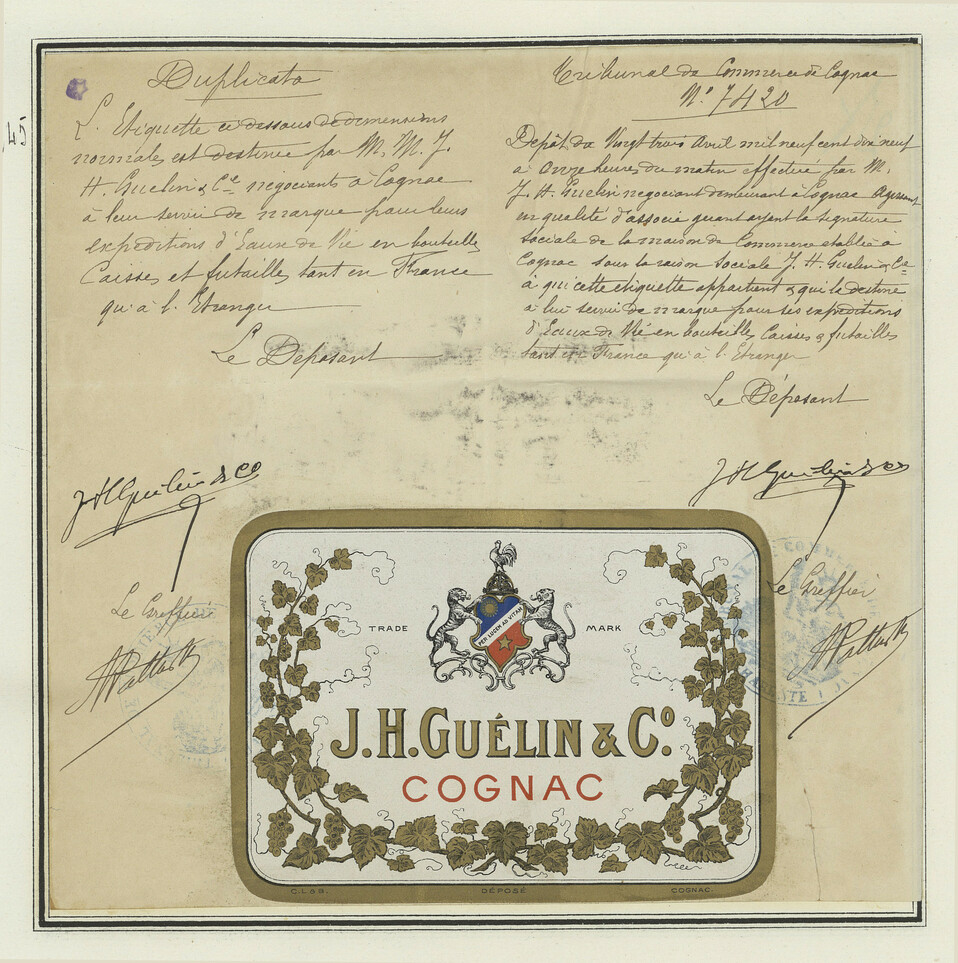 Duplicata
L'Etiquette ci dessous de dimensions
normales est destinée par M. M. J.
H. Guelin & Cie négociants à Cognac
à leur servir de marque pour leurs
expeditions d'Eaux de Vie en bouteilles
Caisses et futailles tant en France
qu'à l'Etranger
Le Deposant
J H Guelin & Co
Le Greffier
45
Tribunal de Commerce de Cognac
No 7420
Depôt du Vingt trois Avril mil neuf cent dix neuf
à onze heures du matin effectué par M.
J. H. Guelin negociant demeurant à Cognac Agissant
en qualité d'associé quant ayant la signature
sociale de la maison de Commerce etablie à
Cognac sous la raison Sociale J. H. Guelin & Cie
à qui cette etiquette appartient & qui la destine
à lui servir de marque pour ses expeditions
d'Eaux de Vie en bouteilles Caisses & futailles
tant en France qu'à l'Etranger
Le Déposant
J H Guelin & Co
Le Greffier
TRADE MARK
PER LUCEM AD VITAM
J.H.GUÉLIN & Co.
COGNAC
C.L&B. DÉPOSÉ COGNAC.